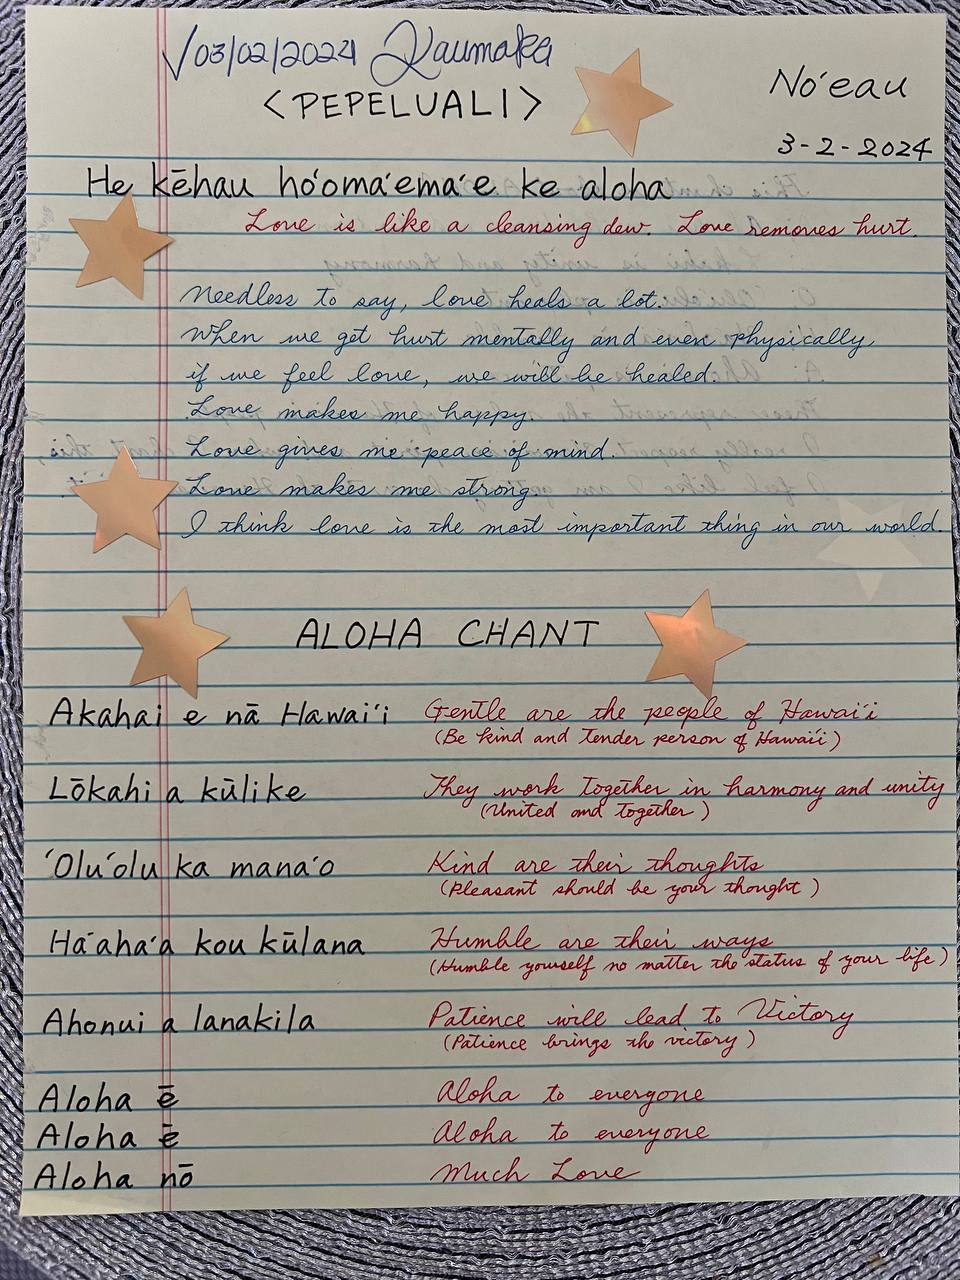 √03/02/2024 Kaumaka
<PEPELUALI>
No'eau
3-2-2024
He kēhau ho'oma'ema'e ke aloha
Love is like a cleansing dew. Love removes hurt.
Needless to say, love heals a lot.
When we get hurt mentally and even physically,
if we feel love, we will be healed.
Love makes me happy.
Love gives me peace of mind.
Love makes me strong.
I think love is the most important thing in our world.
ALOHA CHANT
Akahai e nā Hawai'i Gentle are the people of Hawai'i
(Be kind and tender person of Hawai'i)
Lōkahi a kūlike They work together in harmony and unity
(United and together)
'Olu'olu ka mana'o Kind are their thoughts
(Pleasant should be your thought)
Ha'aha'a kou kūlana Humble are their ways
(Humble yourself no matter the status of your life)
Ahonui a lanakila Patience will lead to Victory
(Patience brings the victory)
Aloha ē Aloha to everyone
Aloha ē Aloha to everyone
Aloha nō Much Love